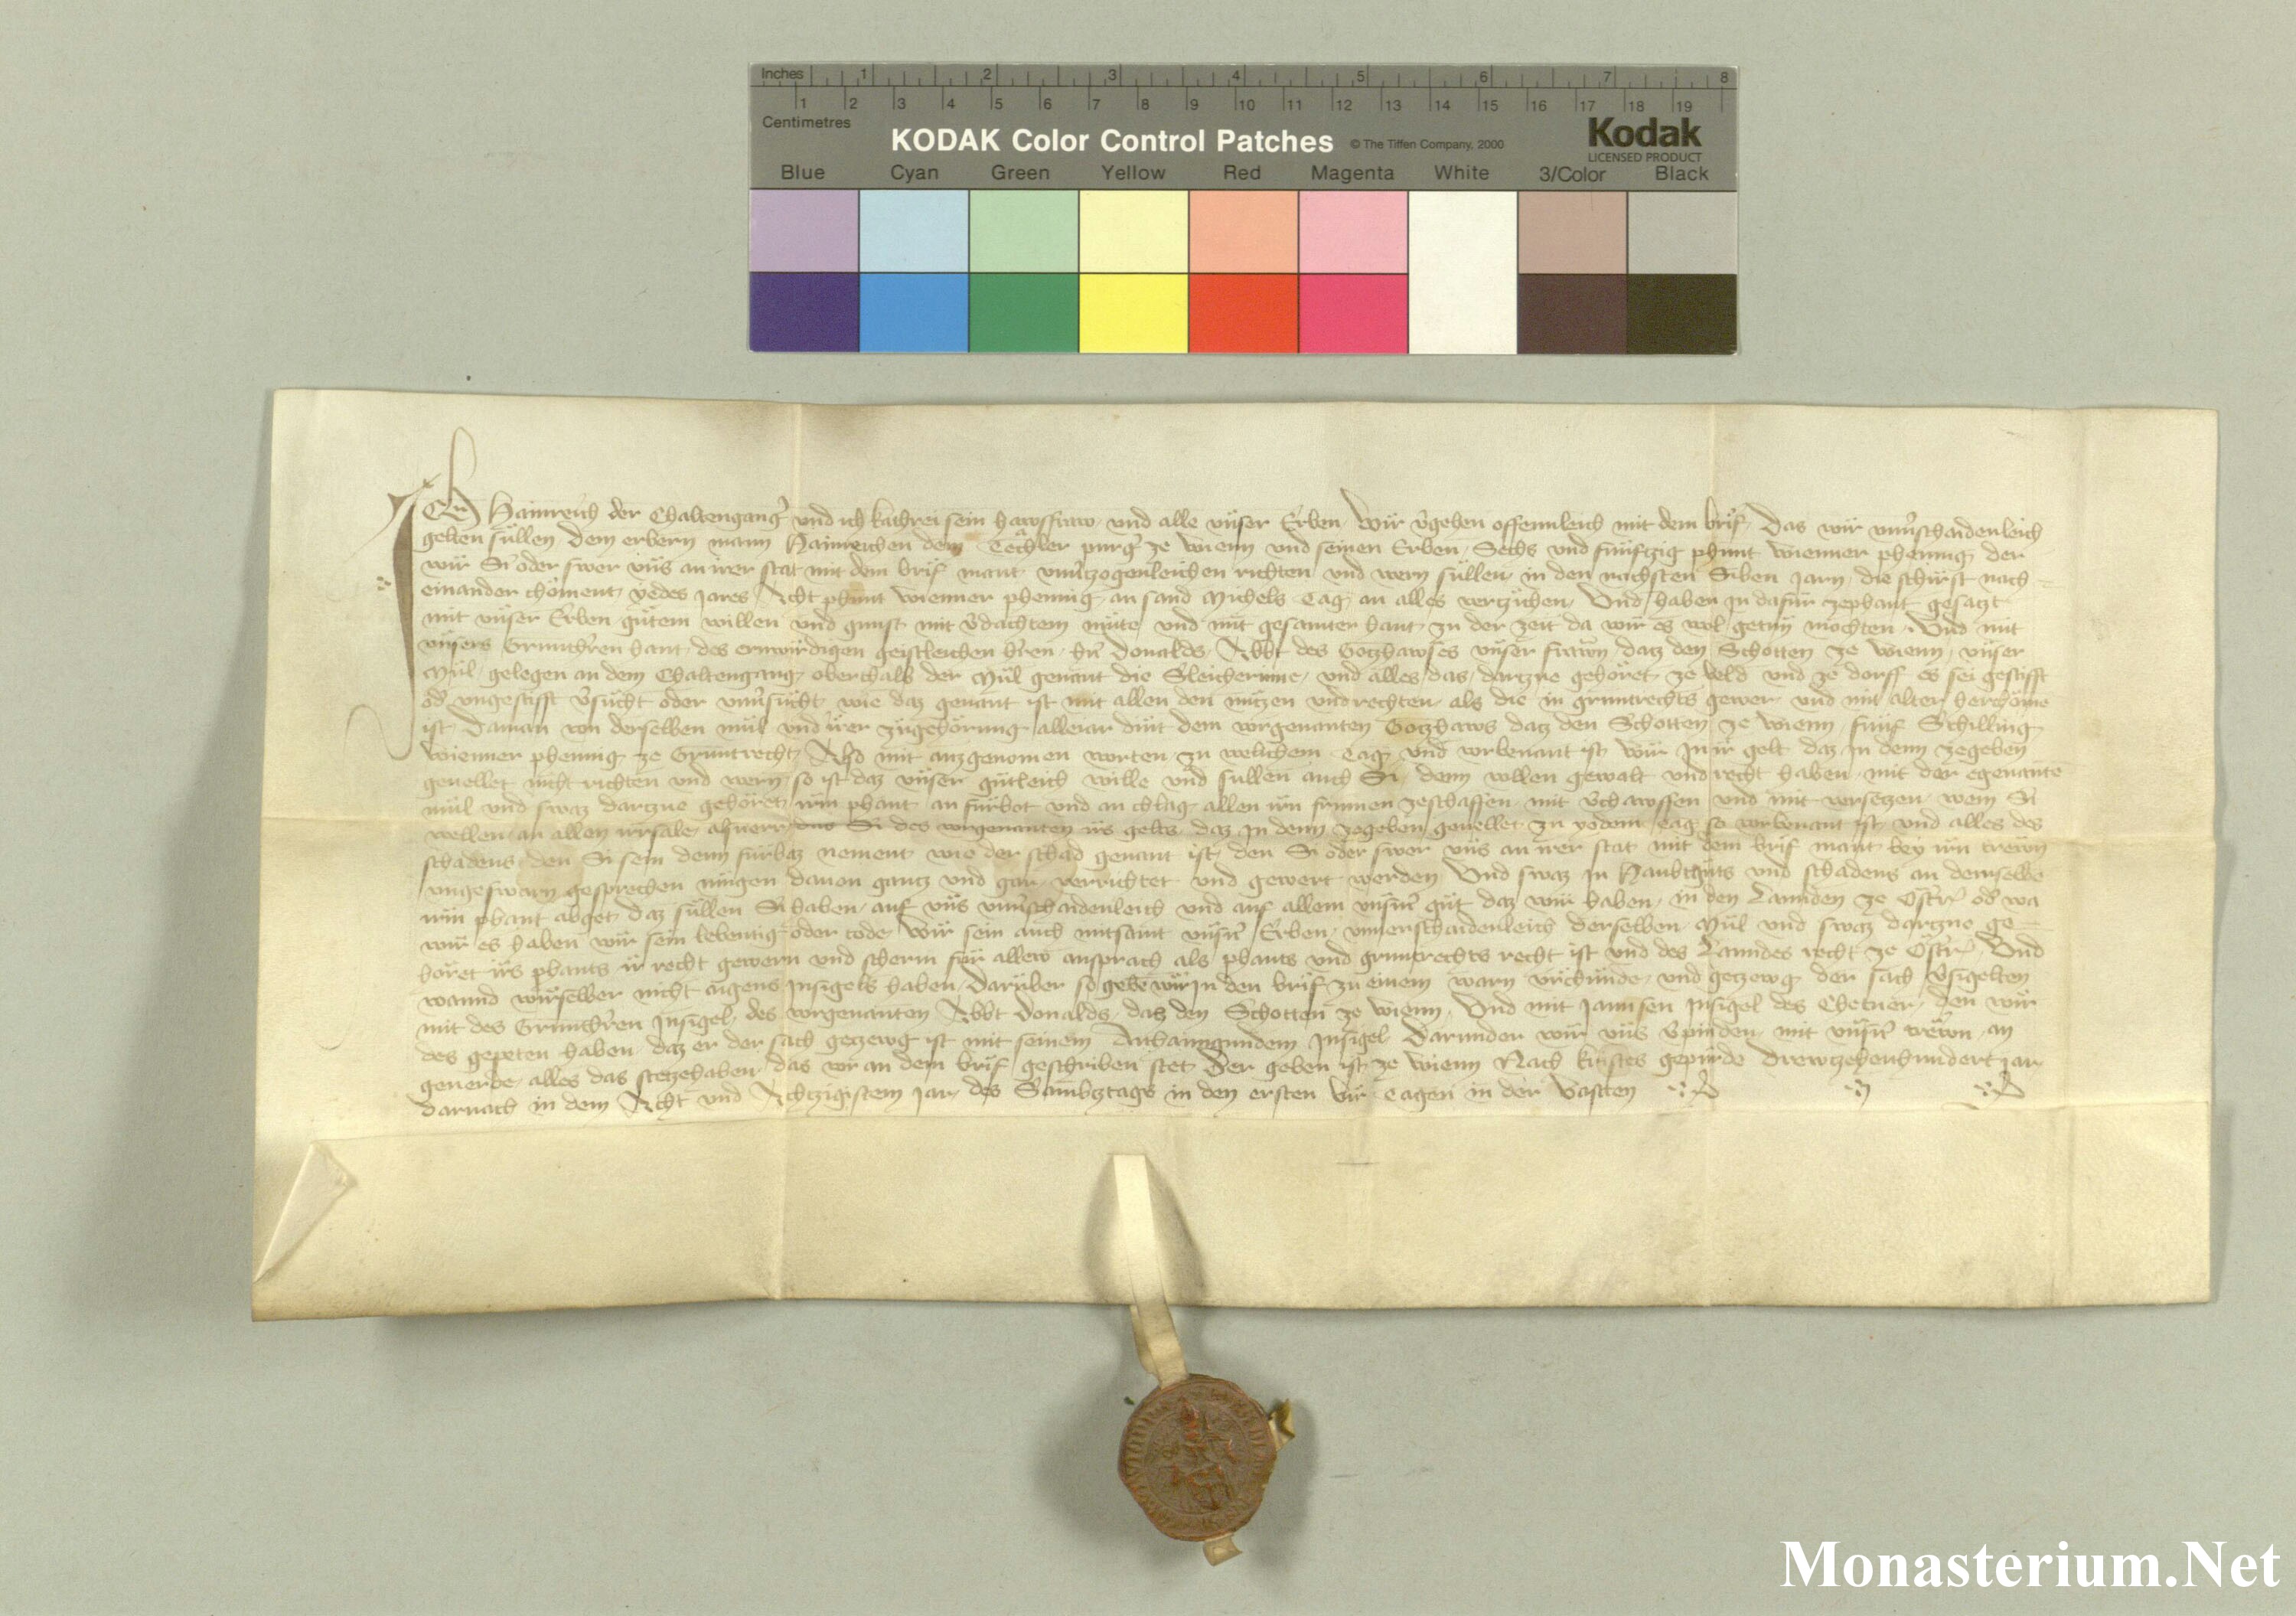 Inches 1 2 3 4 5 6 7 8
1 2 3 4 5 6 7 8 9 10 11 12 13 14 15 16 17 18 19
Centimetres
KODAK Color Control Patches © The Tiffen Company, 2000 Kodak
LICENSED PRODUCT
Blue Cyan Green Yellow Red Magenta White 3/Color Black
Ich Hainreich der Chaltenganger und ich kathrei sein hawsfraw und alle vnser Erben Wir v̾gehen offennleich mit dem brif Das wir vnu̾schaidenleich
gelten sullen dem erbern mann Hainreichen dem purg̾ ze wienn vnd seinen Erben Sechs vnd funfczig phunt wienner phennig der
wir Si oder swer vns an irer stat mit dem brif mant vnu̾czogenleichen richten vnd wern sullen in den nachsten Siben jarn die schirst nach
einander choment yedes jares Acht phunt wienner phennig an sand Michels tag an alles verczichen Vnd haben in dafur zephant gesaczt
mit vnser Erben gutem willen vnd gunst mit v̾dachtem mute vnd mit gesamter hant zu der zeit da wir es wol getun mochten Vnd mit
vnsers Grunth̾ren hant des erwirdigen geistleichen h̾ren h̾n Donalds Abbt des Goczhawses vnser frawn dacz den Schotten ze wienn vnser
Mul gelegen an dem Chaltengang oberthalb der Mul genant die Sleicherinne vnd alles das darczue gehoret ze veld vnd ze dorff es sei gestifft
od̾ vngestifft v̾sucht oder vnu̾sucht wie daz genant ist mit allen den nuczen vnd rechten als die in gruntrechts gewer vnd mit alter herchome
ist Dauan von derselben mul vnd irer zugehorung allejar dint dem vorgenanten Goczhaws dacz den Schotten ze wienn funf Schilling
wienner phennig ze Gruntrecht Also mit auzgenomen worten zu welichem tag vnd vorbenant ist wir in ir gelt daz in denn zegeben
geuellet nicht richten vnd wern so ist daz vnser gutleich wille vnd sullen auch Si denn vollen gewalt vnd recht haben mit der egenante
mul vnd swaz darczue gehoret irm phant an furbot vnd an chlag allen irn frumen zeschaffen mit v̾chawffen vnd mit versetzen wem Si
wellen an allen irrsale alsuerr daz Si des vorgenanten irs gelts daz in denn zegeben geuellet zu yedem tag so vorbenant ist vnd alles des
schadens den Si sein denn furbaz nement wie der schad genant ist den Si oder swer vns an irer stat mit dem brif mant bey irn trewn
vngeswarn gesprechen mugen dauon gancz vnd gar verrichtet vnd gewert werden Vnd swaz in Haubtguts vnd schadens an demselbe
irm phant abget daz sullen Si haben auf vns vnu̾schaidenleich vnd auf allem vnsr̾m gut daz wir haben in den Lannden ze Ost̾r od̾ wa
wir es haben wir sein lebentig oder tode Wir sein auch mitsamt vnsr̾n Erben vnuerschaidenleich derselben Mul vnd swaz darczue ge-
horet irs phants ir recht gewern vnd scherm fur allew ansprach als phants vnd gruntrechts recht ist vnd des Lanndes recht ze Ost̾r Vnd
wannd wirselber nicht aigens Insigels haben Daruber so geben wir in den brif zu einem warn vrchunde vnd geczewg der sach v̾sigelten
mit des Grunth̾ren Insigel des vorgenanten Abbt Donalds dacz den Schotten ze wienn Vnd mit Jannsen Insigel des den wir
des gepeten haben daz er der sach geczewg ist mit seinem Anhanngundem Insigel Darunder wir vns v̾pinden mit vnsr̾n trewn an
geuerde alles das stetzehaben das vor an dem brif geschriben stet Der geben ist ze wienn Nach kristes gepurde Drewczehenhundert jar
darnach in dem Acht vnd Achtzigistem jar des Sambcztags in den ersten vir tagen in der vasten
Monasterium.Net